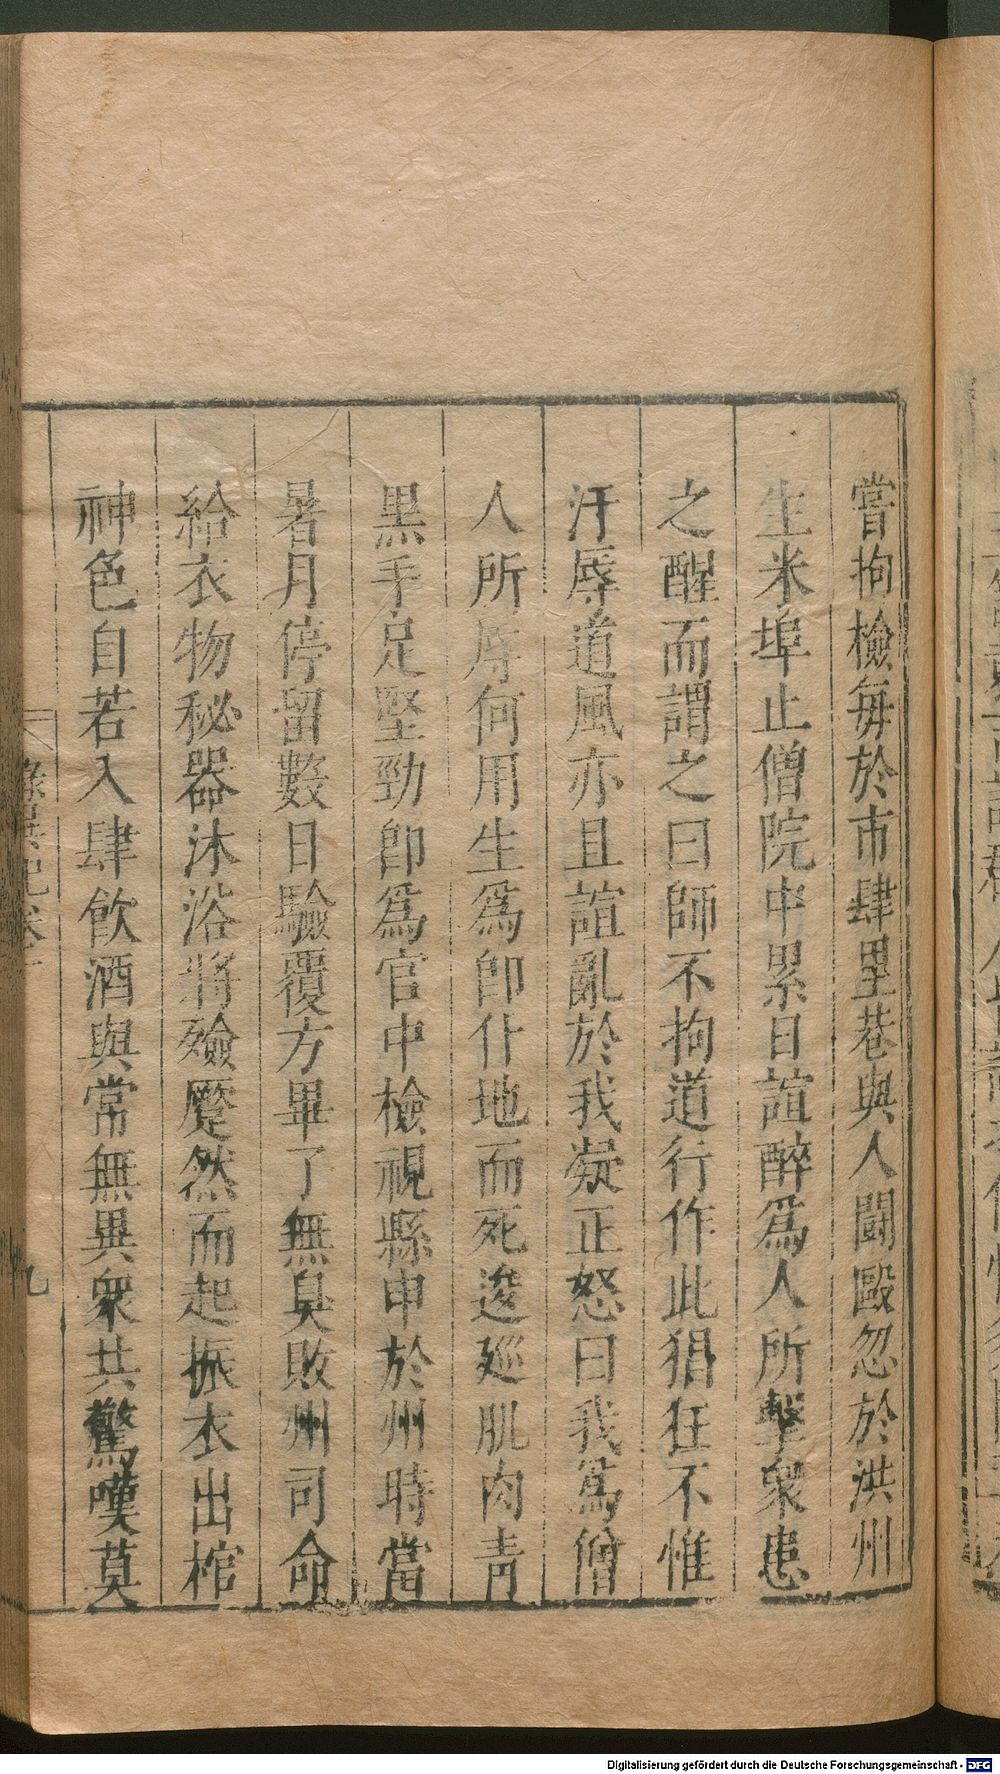 嘗拘檢每於市肆里巷與人鬪毆忽於洪州
生米埠止僧院中累日諠醉爲人所擊衆患
之醒而謂之曰師不拘道行作此猖狂不惟
汙辱道風亦且諠亂於我凝正怒曰我爲僧
人所辱何用生爲卽仆地而死逡廵肌肉青
黑手足堅勁卽爲官中檢視縣申於州時當
暑月停留數日驗覆方畢了無臭敗州司命
給衣物秘器沐浴將殮蹷然而起振衣出棺
神色自若入肆飮酒與常無異衆共驚嘆莫
錄異記卷
九
Digitalisierung gefördert durch die Deutsche Forschungsgemeinschaft - DFG